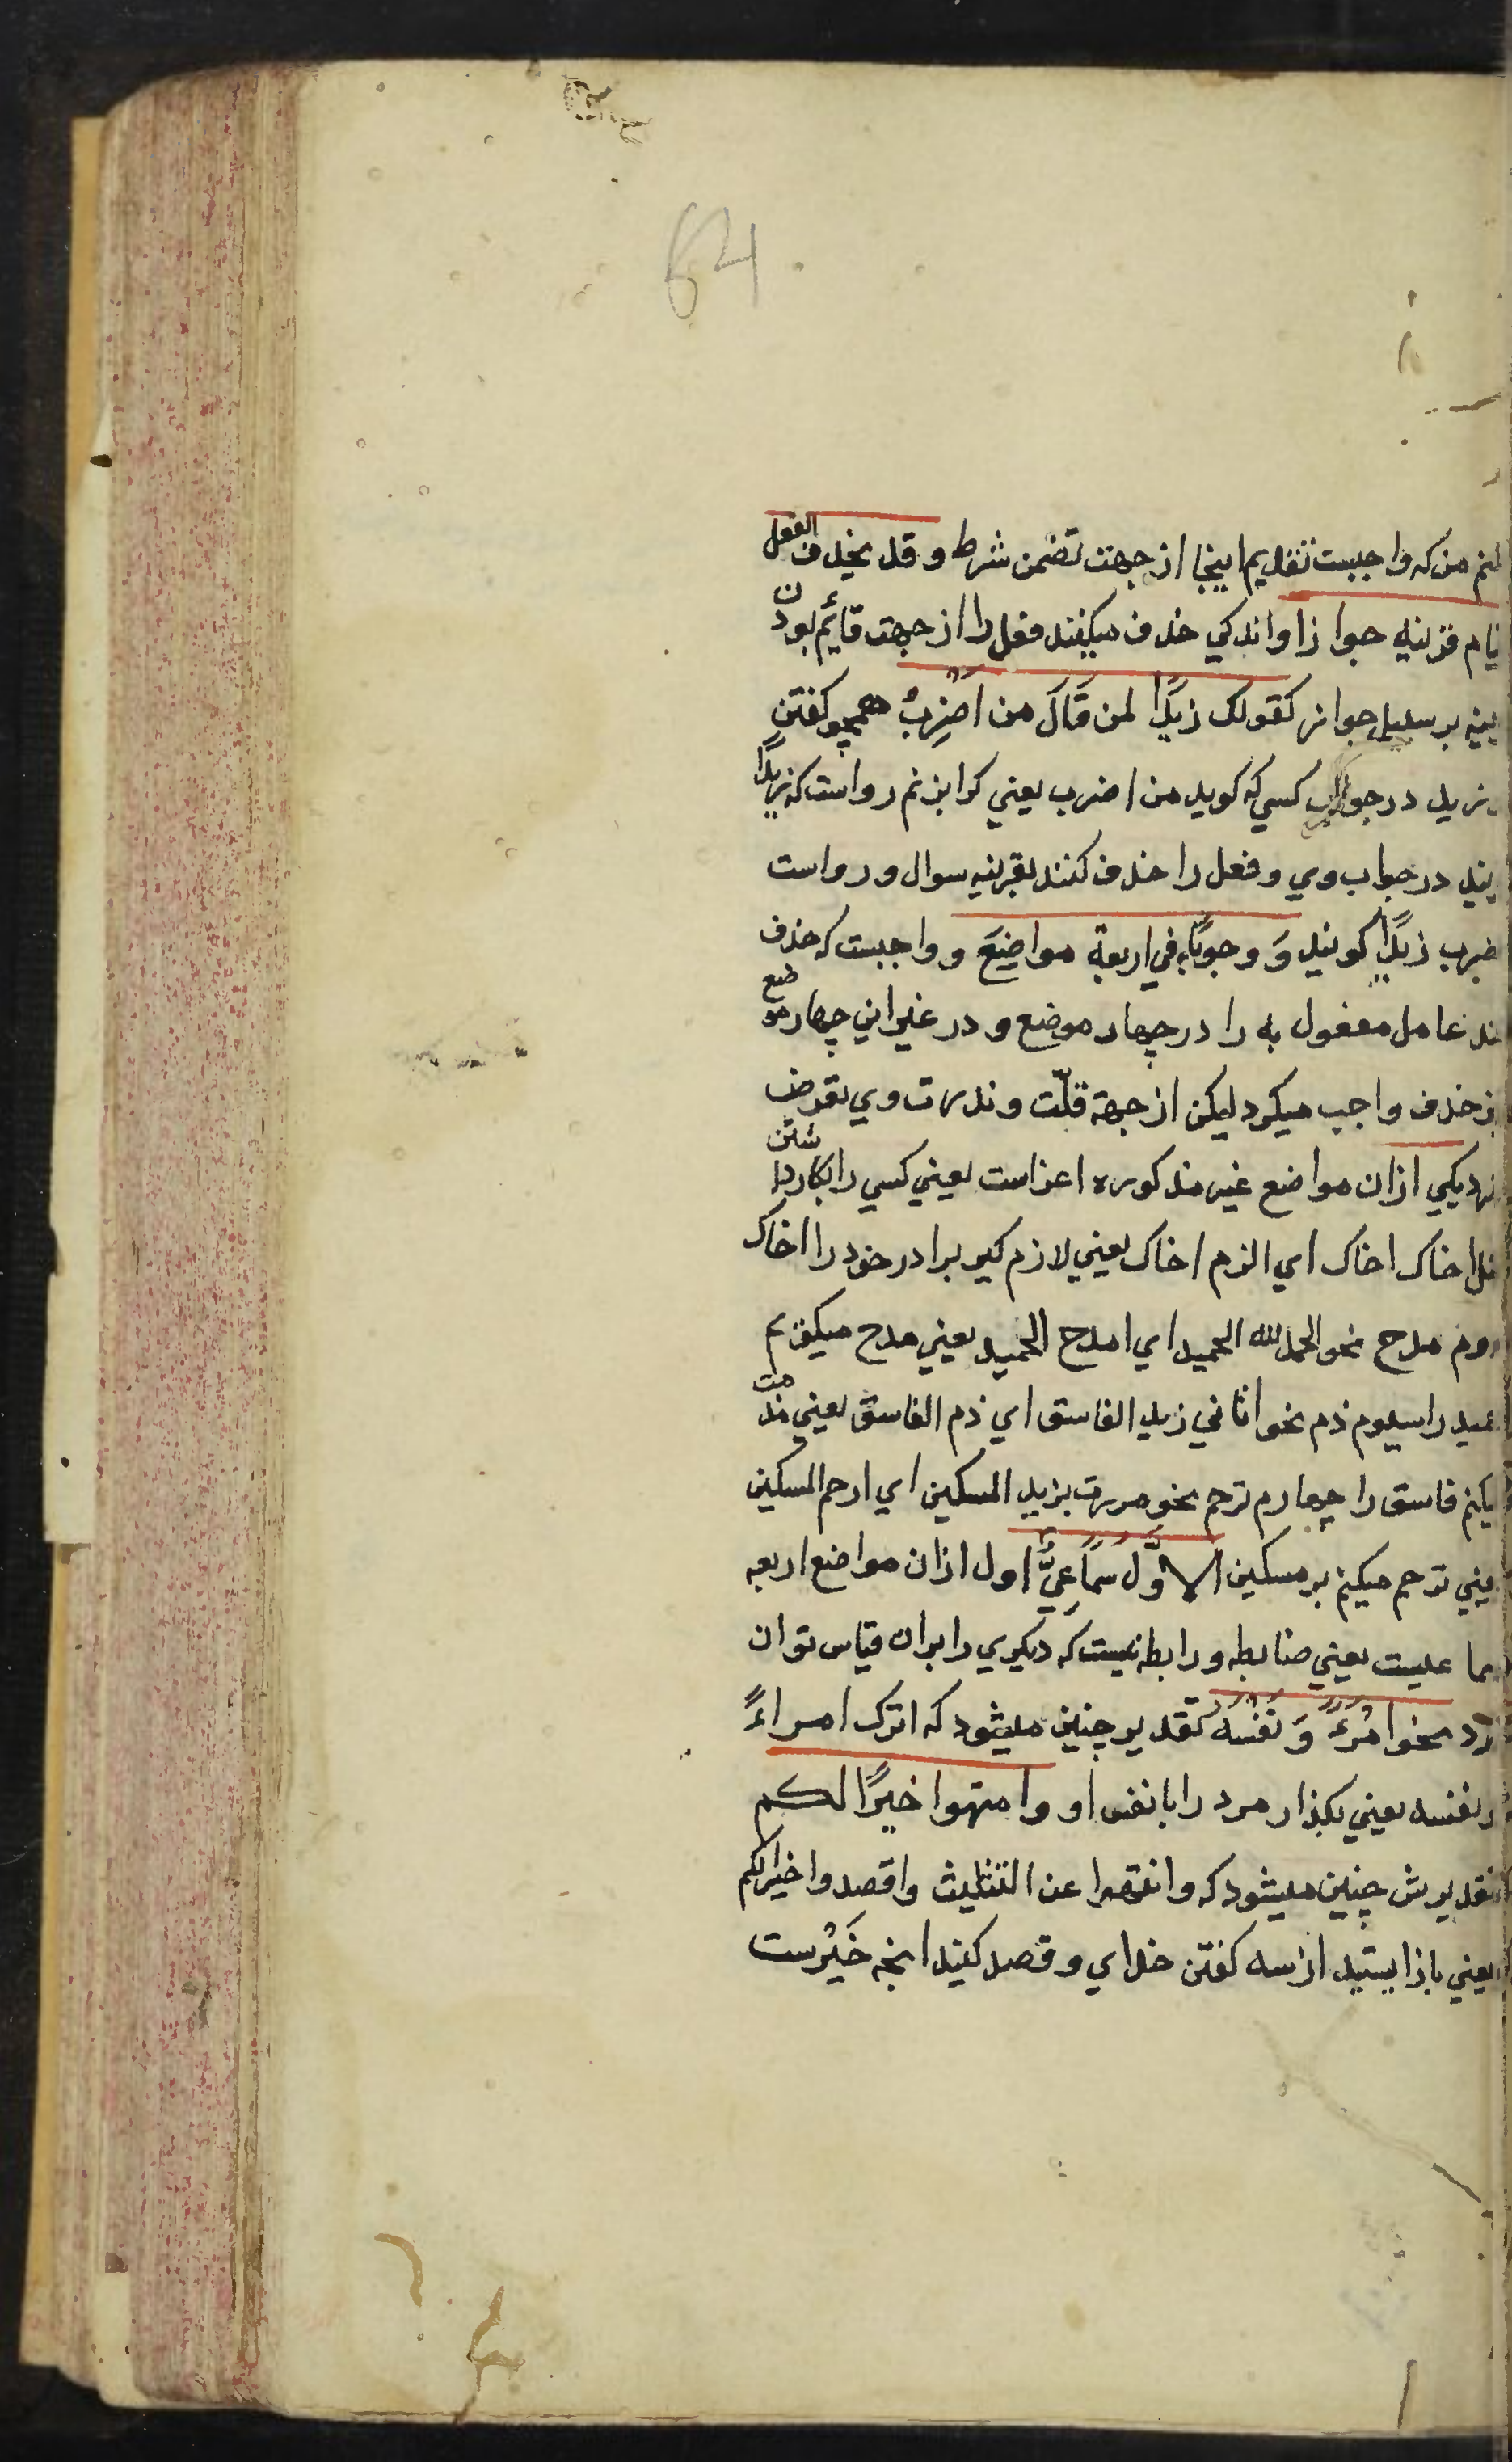 64
من که واجبست تقدیم اینجا از جهت تضمن شرط و قد یحذف الفعل
قرینه جوازا و اندکی حذف میکنند فعل را از جهت قائم بودن
بر سبیل جواز کقولک زیدًا لمن قَالَ من اَضْرِبُ همچو کفتنِ
زید در جواب کسي که کوید من اضرب یعني کرا بزنم رواست که زیدًا
در جواب وي و فعل را حذف کنند بقرینه سوال و رواست
زیدًا کویند وَ وجوبًا في اربعة مواضِعَ و واجبست که حذف
عامل مفعول به را در چهار موضع و در غیر این چهار موضع
حذف واجب میکرد لیکن از جهة قلّت و ندرت وي تعرض
یکي ازان مواضع غیر مذکوره اغراست یعني کسي را بکار داشتن
اخاک اخاک اي الزم اخاک یعني لازم کیر برادر خود را اخاک
مدح نحو الحمد لله الحمید اي امدح الحمید یعني مدح میکویم
را سیوم ذم نحو اتاني زید الفاسق اي ذم الفاسق یعني مذمت
فاسق را چهارم ترحم نحو مررت بزید المسکین اي ارحم المسکین
ترحم میکنم بر مسکین الاوَّل سَمَاعِيٌّ اول ازان مواضع اربعه
یعني ضابطه و رابطه نیست که دیکري را بران قیاس توان
نحو امْرَءً وَ نَفْسَهُ تقدیر چنین میشود که اترک امراءً
و نفسه یعني بکذار مرد را با نفس او و انتهوا خیرًا لکم
تقدیرش چنین میشود که وانتهوا عن التثلیث واقصدوا خیرا لکم
یعني باز ایستید از سه کفتن خداي و قصد کنید انچه خَیْرست